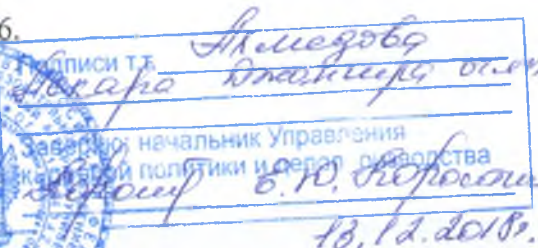 6.
Подписи т.т. Ахмедова
Аскара Джангира оглы
Заверяю: начальник Управления
кадровой политики и делопроизводства
Е.Ю.
13.12.2018г.